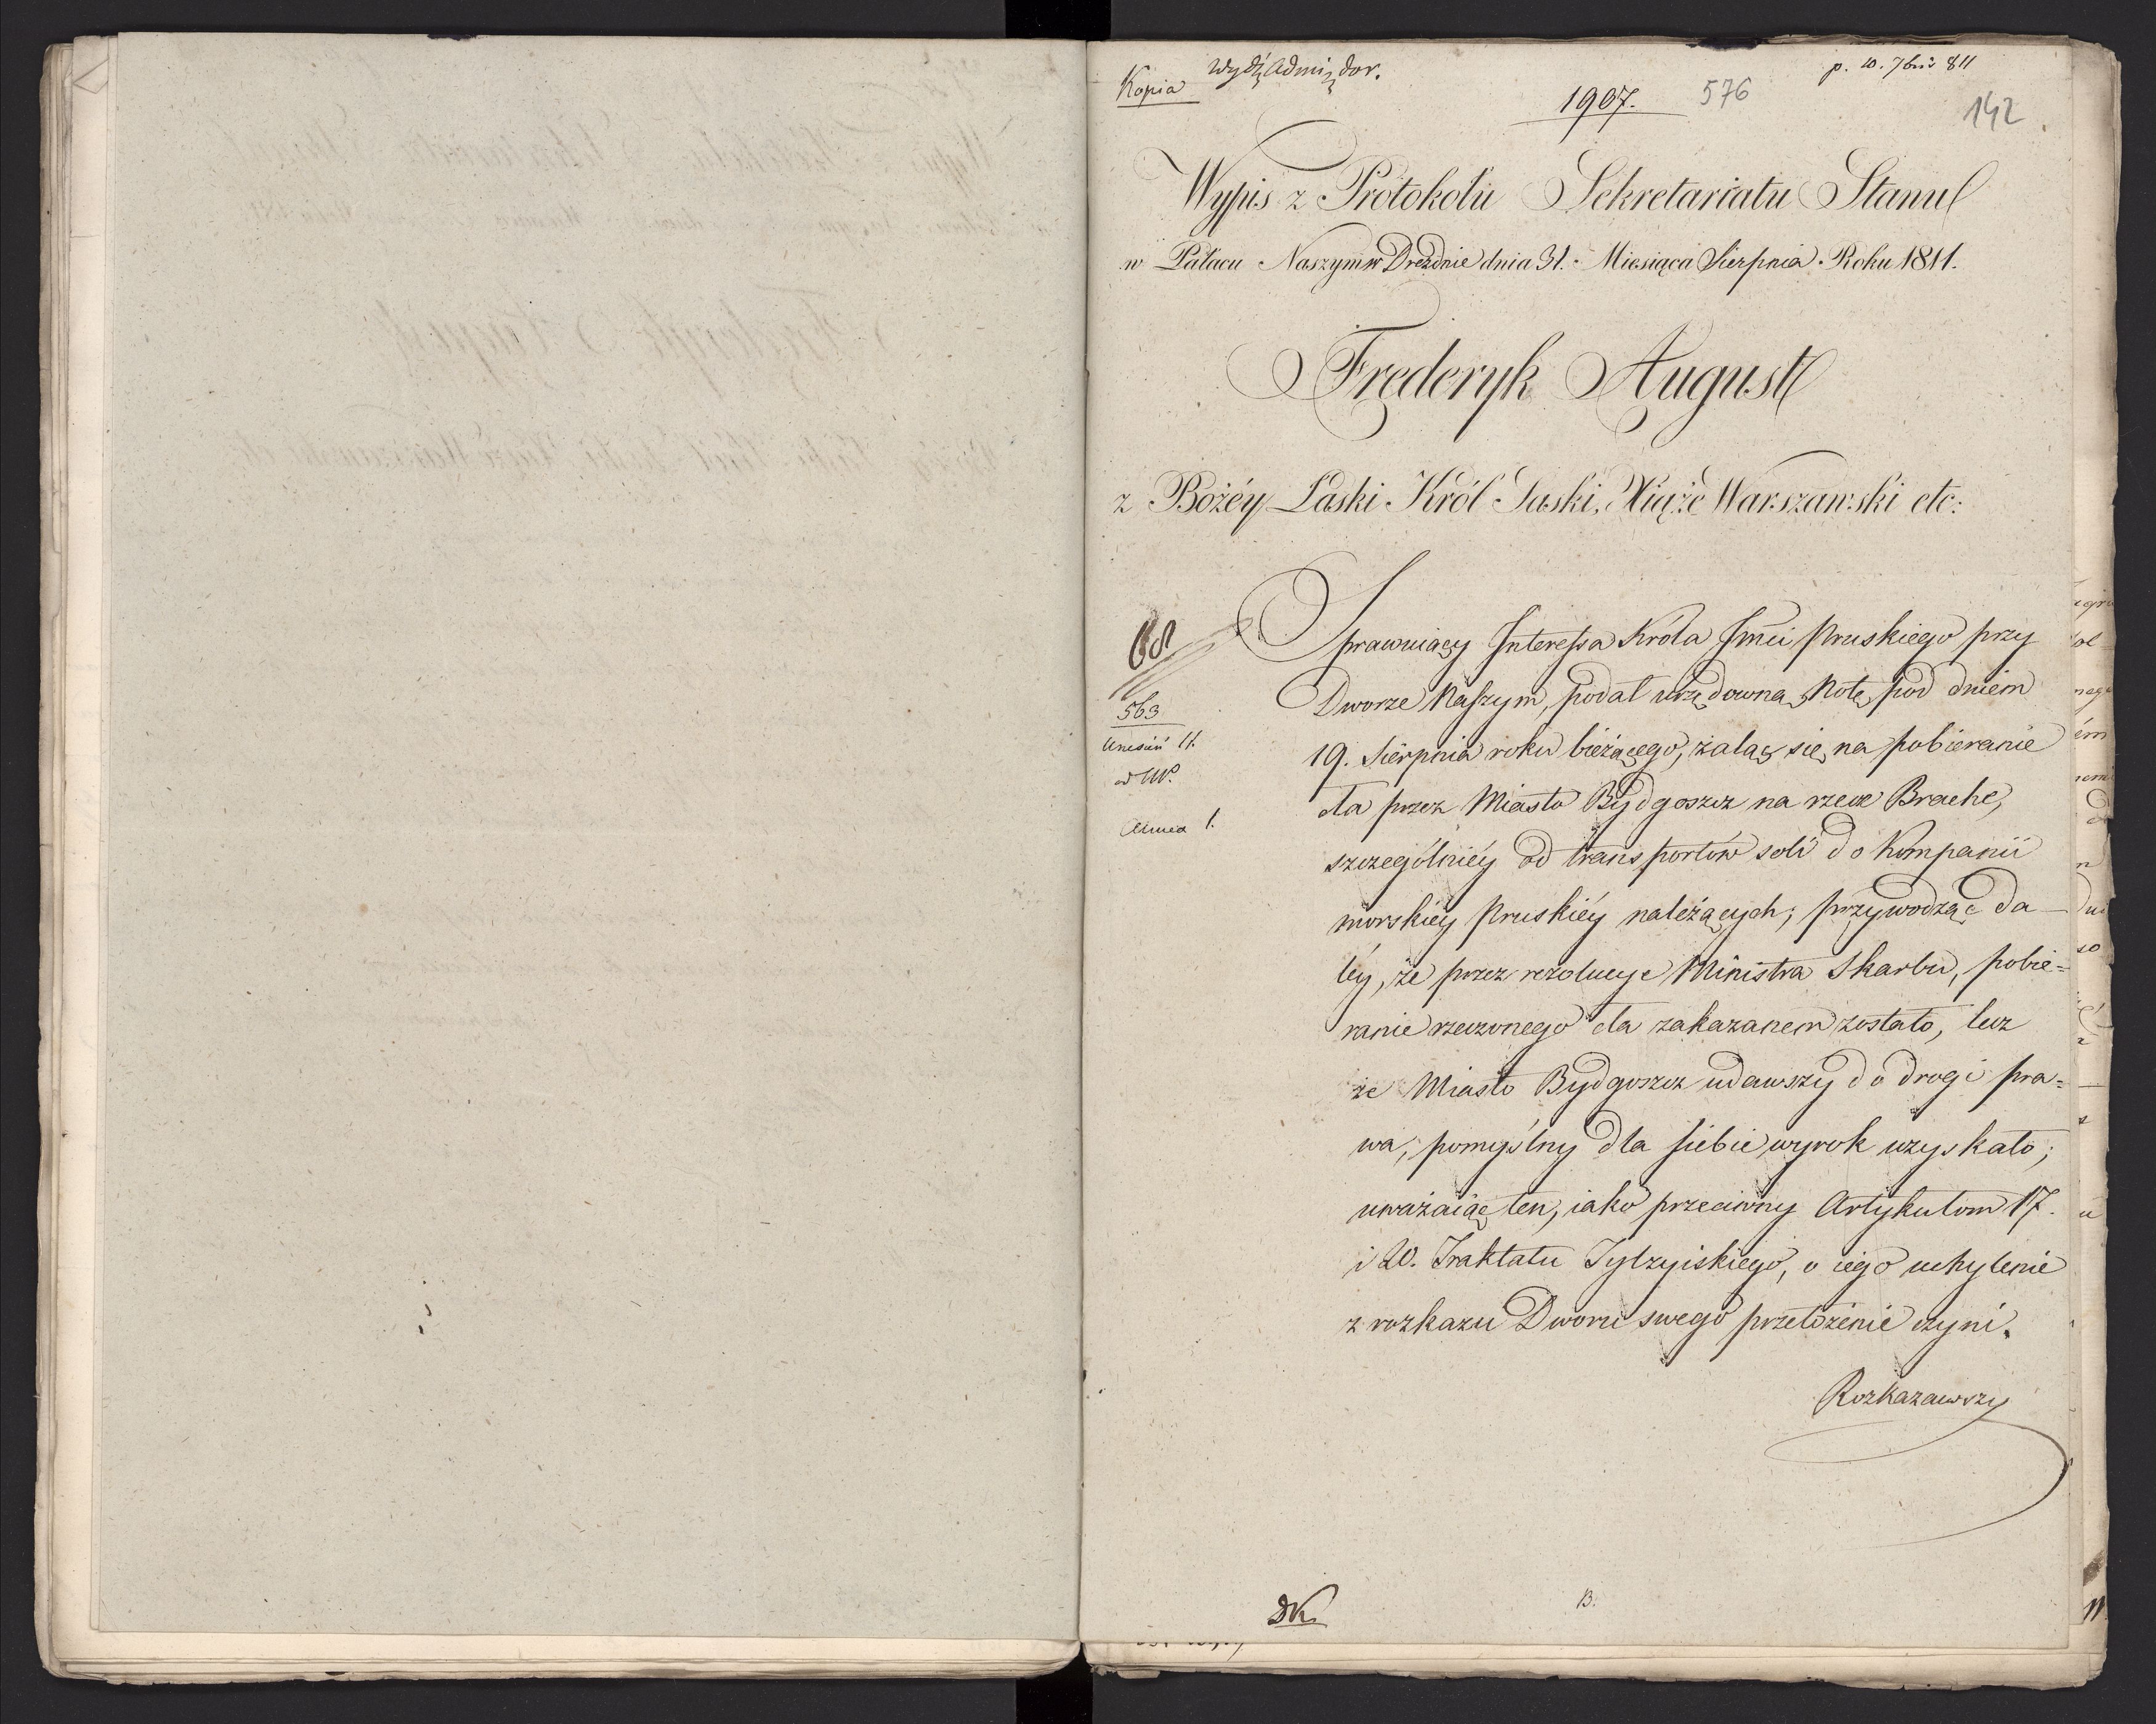 Kopia Wydz Admi dor.
p. 10. 7bris 811
1907. 576
142
Wypis z Protokołu Sekretariatu Stanu
w Pałacu Naszym w Dreźdnie dnia 31. Miesiąca Sierpnia Roku 1811.
Frederyk August
z Bożéy Łaski Król Saski, Xiąże Warszawski etc:
68
Sprawuiący Interessa Króla Jmci Pruskiego przy
Dworze Naszym, podał urzędowną Notę pod dniem
563
19. Sierpnia roku bieżącego, żaląc się na pobieranie
cła przez Miasto Bydgoszcz na rzece Brache,
szczególniéy od transportów soli do Kompanii
morskiéy Pruskiéy należących; przywodząc da-
léy, że przez rezolucye Ministra Skarbu, pobie=
ranie rzeczonego cła zakazanem zostało, lecz
że Miasto Bydgoszcz udawszy do drogi pra=
wa, pomyślny dla siebie wyrok uzyskało;
uważaiąc ten, iako przeciwny Artykułom 17.
i 20. Traktatu Tylzyiskiego, o iego uchylenie
z rozkazu Dworu swego przełożenie czyni.
Rozkazawszy
B.